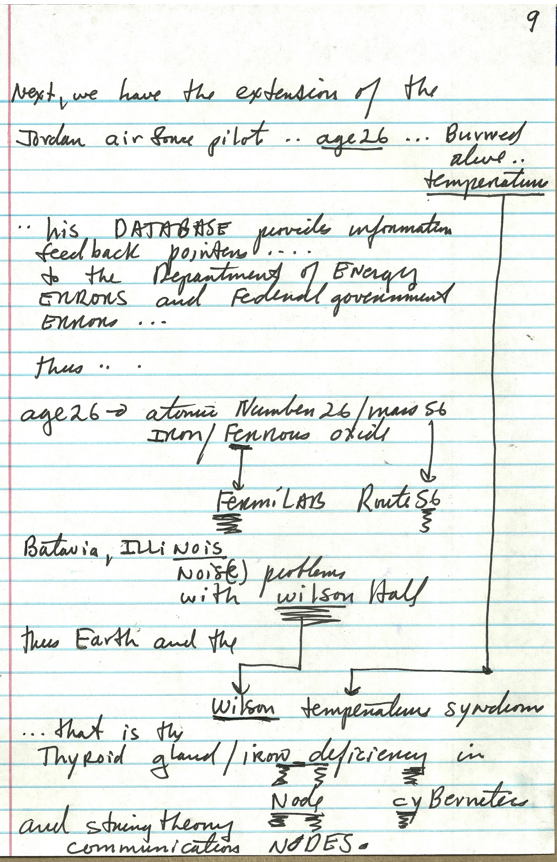 9
Next, we have the extension of the
Jordan air force pilot .. age 26 ... Burned
alive..
temperature
.. his DATABASE provides information
feedback pointers ....
to the Department of ENERGY
ERRORS and Federal government
ERRORS ...
thus .. .
age 26 → atomic Number 26/mass 56
IRON/Ferrous oxide
FermiLAB Route 56
Batavia, ILLINOIS
NOIS(E) problems
with wilson Hall
thus Earth and the
Wilson temperature syndrom
... that is the
Thyroid gland/iron deficiency in
Node cyBernetics
and string theory
communications NODES.